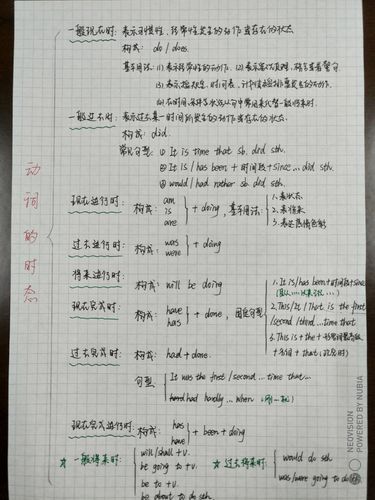 动词的时态
一般现在时: 表示习惯性、经常性发生的动作或存在的状态
构成: do / does.
基本用法: (1) 表示经常性的动作. (2) 表示客观真理, 格言或者警句.
(3) 表示按规定、时间表、计划或安排要发生的动作.
(4) 在时间、条件等状语从句中常用来代替一般将来时.
一般过去时: 表示过去某一时间所发生的动作或存在的状态.
构成: did.
常见句型: ① It is time that sb. did sth.
② It is / has been + 时间段 + since... did sth.
③ would / had rather sb did sth.
现在进行时: 构成: am is are } + doing, 基本用法: 1. 表状态 2. 表将来 3. 表感情色彩
过去进行时: 构成: was were } + doing
将来进行时: 构成: will be doing
现在完成时: 构成: have has } + done, 固定句型:
1. It is / has been + 时间段 + since
2. This / It / That is the first / second / third ... time that
3. This is + the + 形容词最高级 + 名词 + that
过去完成时: 构成: had + done.
句型: It was the first / second ... time that...
had hardly ... when
现在完成进行时: 构成: has have } + been + doing
☆ 一般将来时: will / shall + v.
be going to + v.
be to + v.
be about to do sth.
☆ 过去将来时: would do sth
was / were going to do
NEOVISION
POWERED BY NUBIA